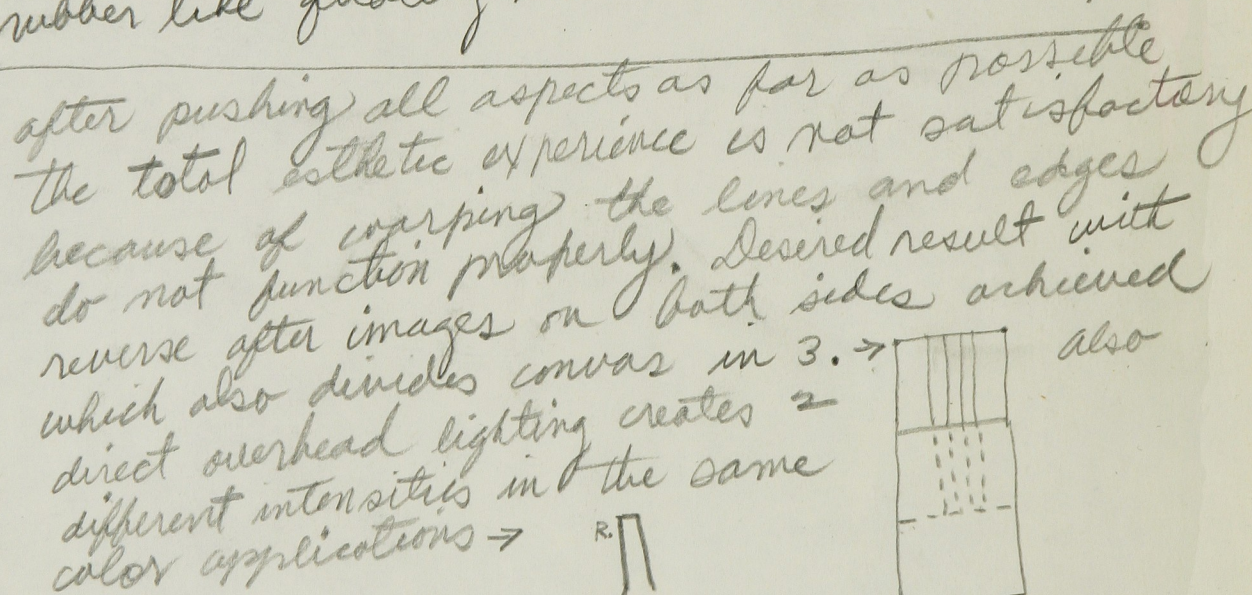 rubber like
after pushing all aspects as far as possible
the total esthetic experience is not satisfactory
because of warping the lines and edges
do not function properly. Desired result with
reverse after images on both sides achieved
which also divides canvas in 3. → also
direct overhead lighting creates 2
different intensities in the same
color applications →
R.